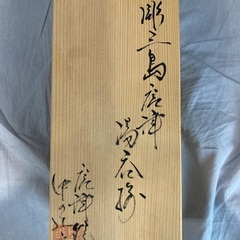 彫三島唐津
湯呑揃
唐津焼